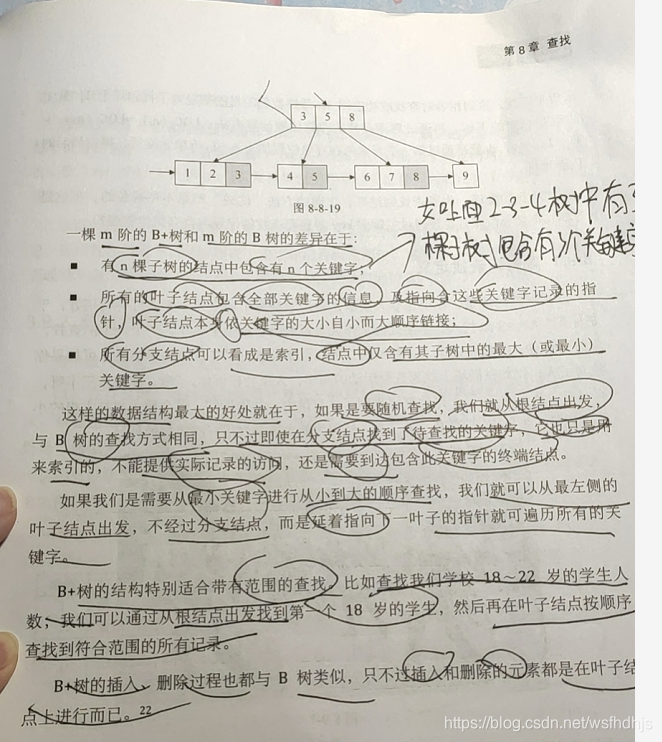 第 8 章 查找
3 5 8
1 2 3 4 5 6 7 8 9
图 8-8-19
2-3-4树中有
棵子树
包含有3个关键字
一棵 m 阶的 B+树和 m 阶的 B 树的差异在于:
■ 有 n 棵子树的结点中包含有 n 个关键字;
■ 所有的叶子结点包含全部关键字的信息,及指向含这些关键字记录的指
针,叶子结点本身依关键字的大小自小而大顺序链接;
■ 所有分支结点可以看成是索引,结点中仅含有其子树中的最大(或最小)
关键字。
这样的数据结构最大的好处就在于,如果是要随机查找,我们就从根结点出发,
与 B 树的查找方式相同,只不过即使在分支结点找到了待查找的关键字,它也只是用
来索引的,不能提供实际记录的访问,还是需要到达包含此关键字的终端结点。
如果我们是需要从最小关键字进行从小到大的顺序查找,我们就可以从最左侧的
叶子结点出发,不经过分支结点,而是延着指向下一叶子的指针就可遍历所有的关
键字。
B+树的结构特别适合带有范围的查找。比如查找我们学校 18~22 岁的学生人
数,我们可以通过从根结点出发找到第一个 18 岁的学生,然后再在叶子结点按顺序
查找到符合范围的所有记录。
B+树的插入、删除过程也都与 B 树类似,只不过插入和删除的元素都是在叶子结
点上进行而已。22
https://blog.csdn.net/wsfhdhjs